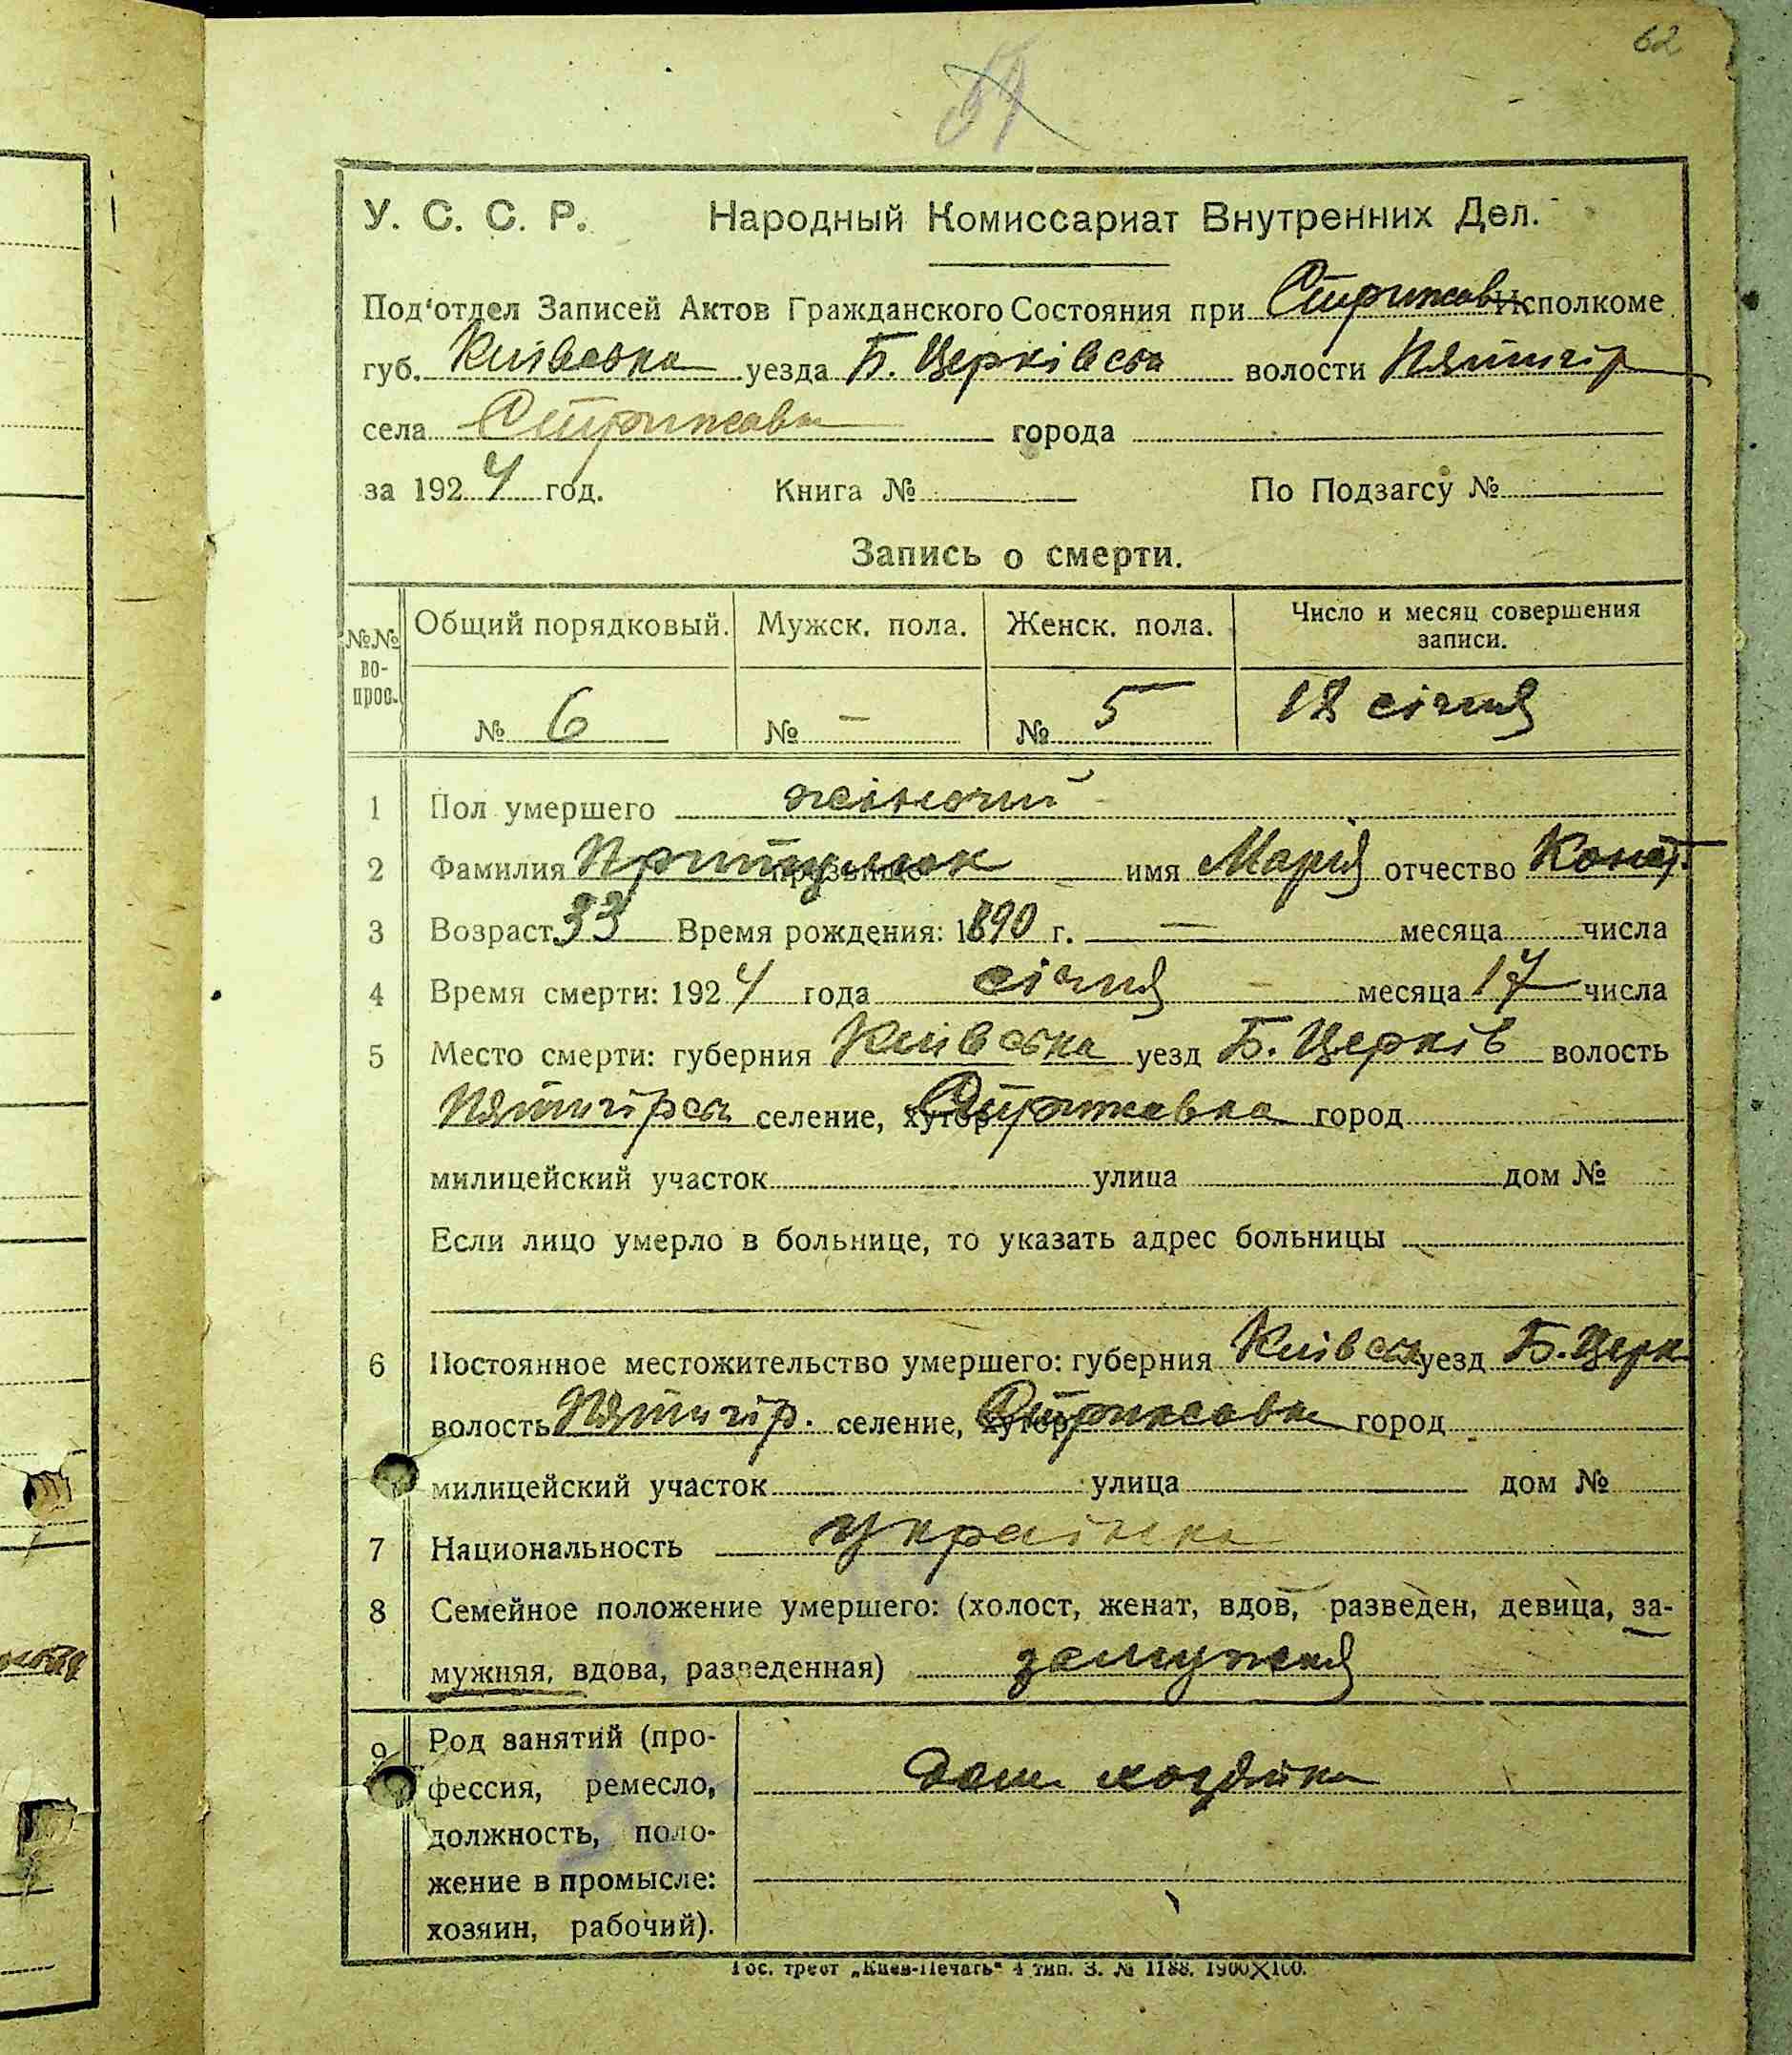 62
У. С. С. Р. Народный Комиссариат Внутренних Дел.
Под'отдел Записей Актов Гражданского Состояния при Стрижав Исполкоме
губ. Київська уезда Б. Церківськ волости Пятигір
села Стрижавка города
за 1924 год. Книга № По Подзагсу №
Запись о смерти.
№№ вопрос. Общий порядковый. Мужск. пола. Женск. пола. Число и месяц совершения записи.
№ 6 № — № 5 18 січня
1 Пол умершего жіночий
2 Фамилия имя Марія отчество Конд.
3 Возраст 33 Время рождения: 1890 г. — месяца числа
4 Время смерти: 1924 года січня месяца 17 числа
5 Место смерти: губерния Київська уезд Б. Церків волость
Пятигірськ селение, хутор Стрижавка город
милицейский участок улица дом №
Если лицо умерло в больнице, то указать адрес больницы
6 Постоянное местожительство умершего: губерния Київськ уезд Б. Церк
волость Пятигір. селение, хутор Стрижавка город
милицейский участок улица дом №
7 Национальность українка
8 Семейное положение умершего: (холост, женат, вдов, разведен, девица, за-
мужняя, вдова, разведенная) замужня
9 Род занятий (про-
фессия, ремесло, дом хозяйка
должность, поло-
жение в промысле:
хозяин, рабочий).
Гос. трест „Киев-Печать" 4 тип. З. № 1188. 1900X100.